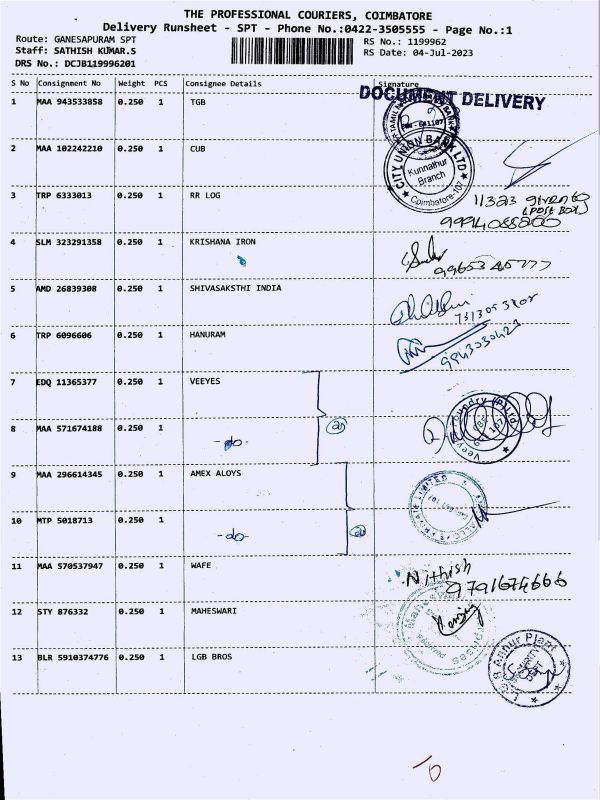 THE PROFESSIONAL COURIERS, COIMBATORE
Delivery Runsheet - SPT - Phone No.:0422-3505555 - Page No.:1
Route: GANESAPURAM SPT
RS No.: 1199962
Staff: SATHISH KUMAR.S
RS Date: 04-Jul-2023
DRS No.: DCJB119996201
S No Consignment No Weight PCS Consignee Details Signature
DOCUMENT DELIVERY
1 MAA 943533858 0.250 1 TGB
PIN - 641107
2 MAA 102242210 0.250 1 CUB
CITY UNION BANK LTD
Kunnathur
Branch
Coimbatore-107
3 TRP 6333013 0.250 1 RR LOG
11323 given to
(POST BOX)
9994088200
4 SLM 323291358 0.250 1 KRISHANA IRON
5 AMD 26839308 0.250 1 SHIVASAKSTHI INDIA
6 TRP 6096606 0.250 1 HANURAM
9943030423
7 EDQ 11365377 0.250 1 VEEYES
8 MAA 571674188 0.250 1 -do-
9 MAA 296614345 0.250 1 AMEX ALOYS
10 MTP 5018713 0.250 1 -do-
11 MAA 570537947 0.250 1 WAFE
Nithish
9791674666
12 STY 876332 0.250 1 MAHESWARI
Received
13 BLR 5910374776 0.250 1 LGB BROS
L G B Annur Plant